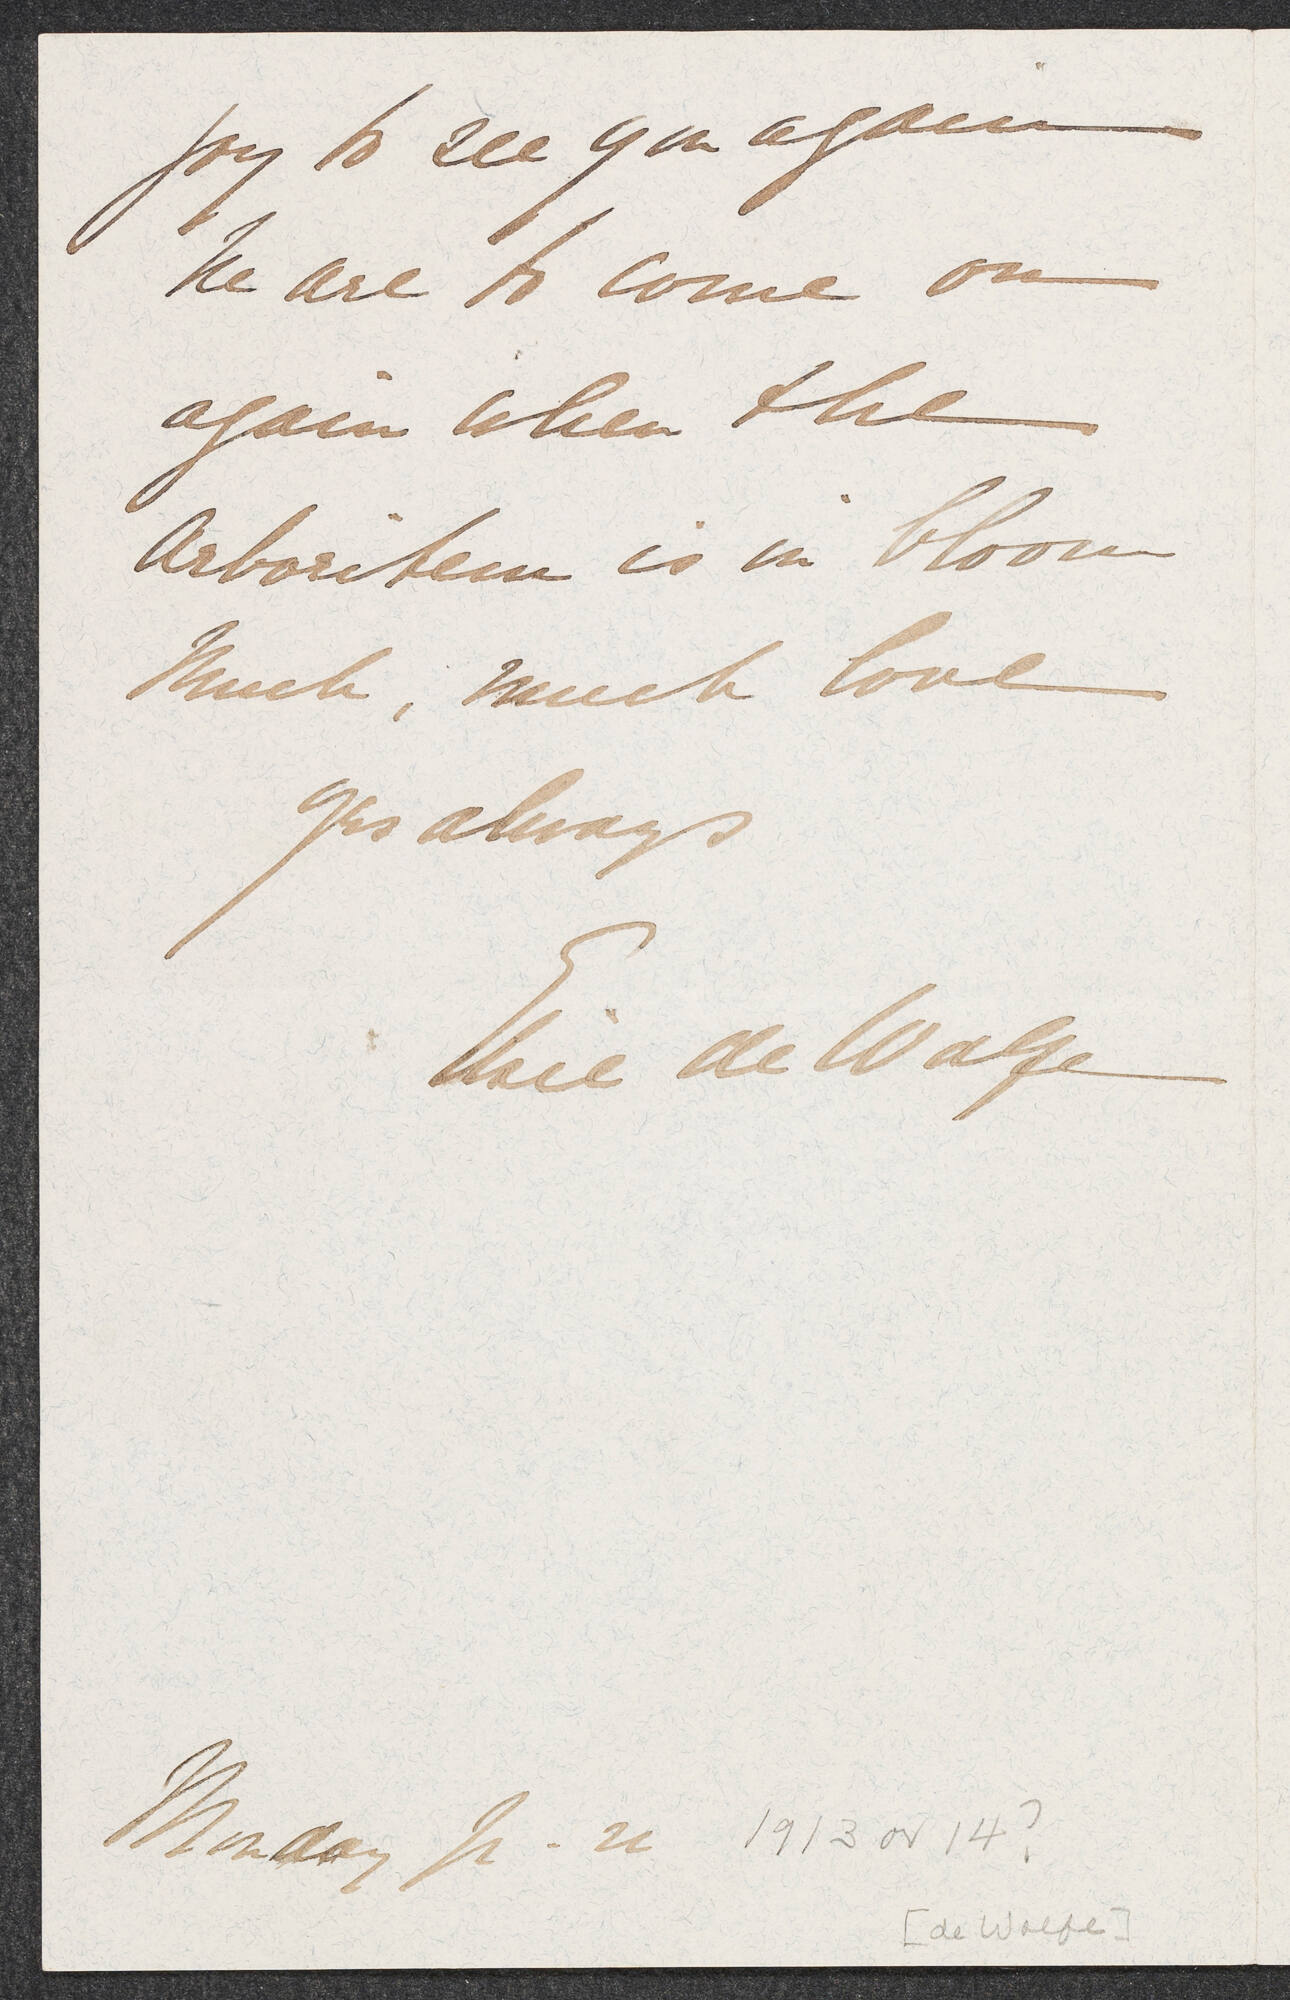 joy to see you again
We are to come on
again when the
Arboritem is in bloom
Much, much love
yrs always
Elsie de Wolfe
Monday 1913 or 14?
[de Wolfe]